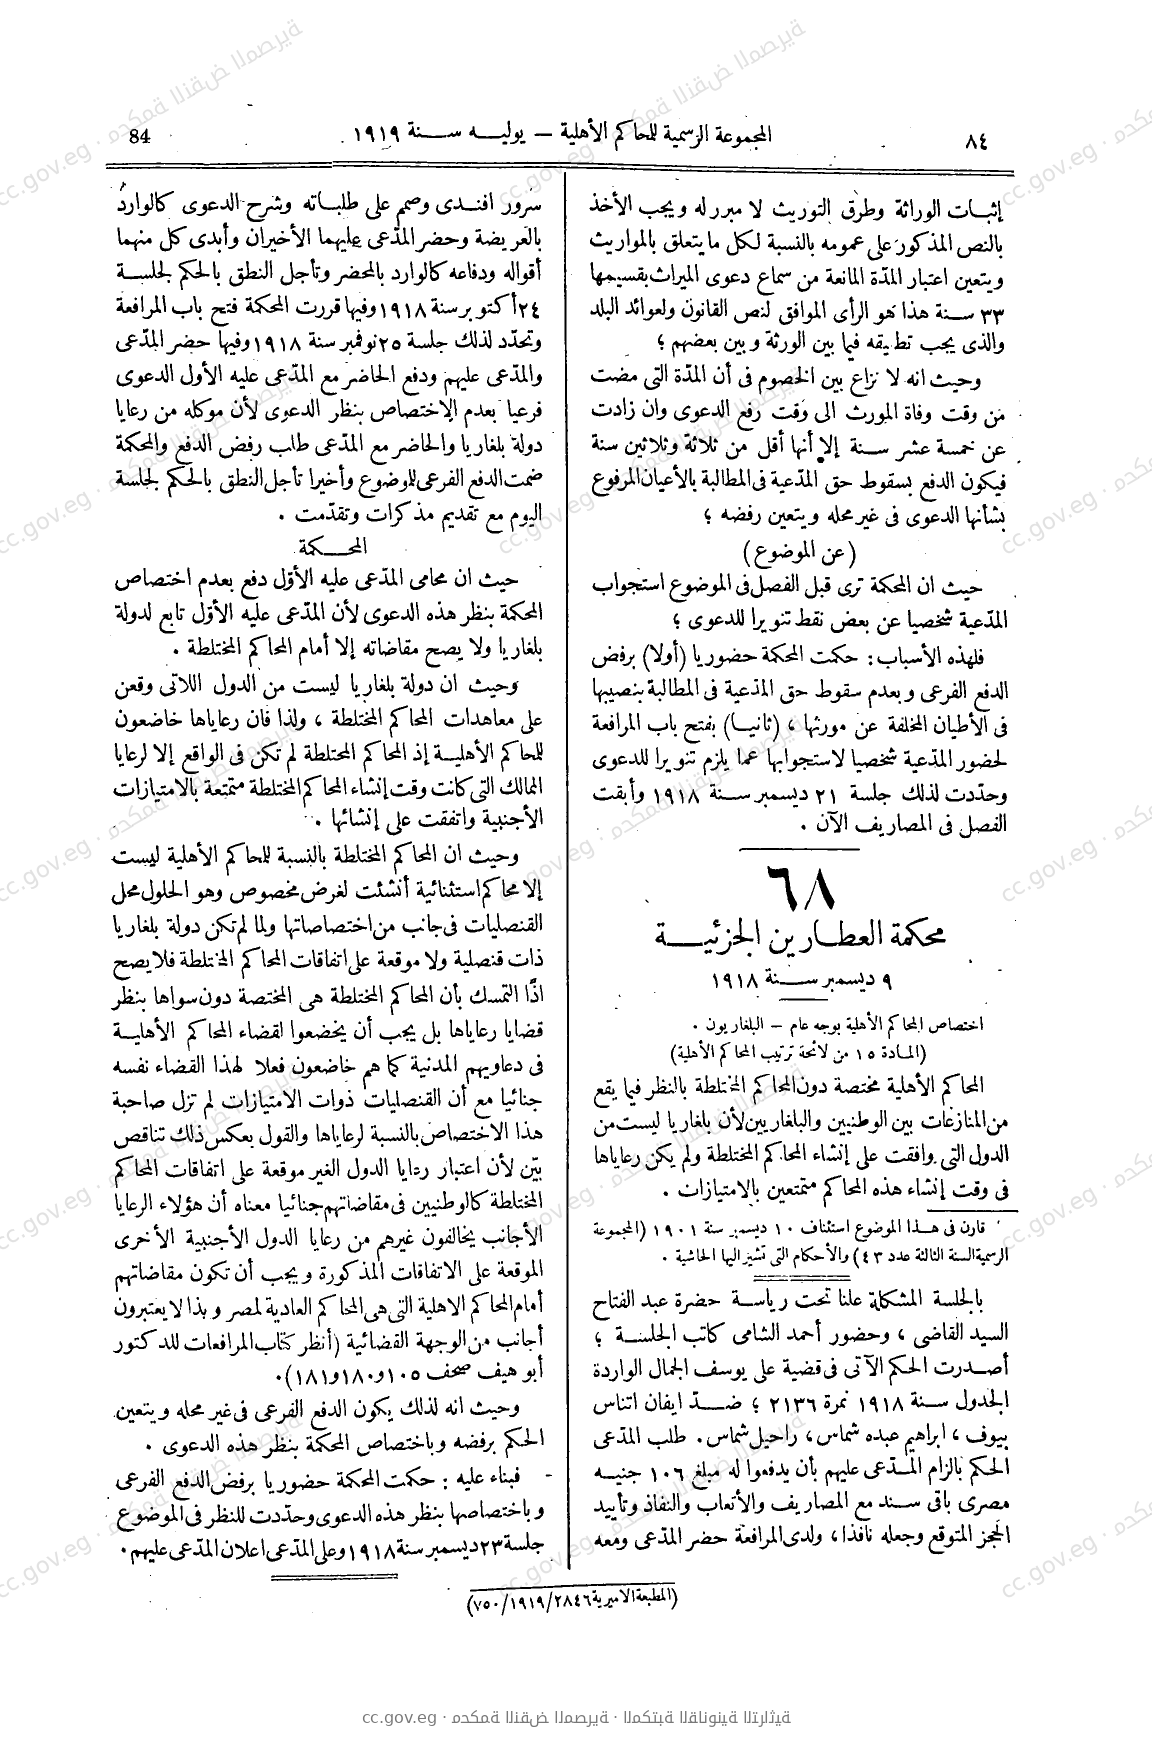 ٨٤
المجموعة الرسمية للمحاكم الأهلية — يوليه سنة ١٩١٩
84
إثبات الوراثة وطرق التوريث لا مبرر له ويجب الأخذ
بالنص المذكور على عمومه بالنسبة لكل ما يتعلق بالمواريث
ويتعين اعتبار المدّة المانعة من سماع دعوى الميراث بقسيمها
٣٣ سنة هذا هو الرأى الموافق لنص القانون ولعوائد البلد
والذى يجب تطبيقه فيما بين الورثة وبين بعضهم ؛
وحيث انه لا نزاع بين الخصوم فى أن المدّة التى مضت
من وقت وفاة المورث الى وقت رفع الدعوى وان زادت
عن خمسة عشر سنة إلا أنها أقل من ثلاثة وثلاثين سنة
فيكون الدفع بسقوط حق المدّعية فى المطالبة بالأعيان المرفوع
بشأنها الدعوى فى غير محله ويتعين رفضه ؛
(عن الموضوع)
حيث ان المحكمة ترى قبل الفصل فى الموضوع استجواب
المدّعية شخصيا عن بعض نقط تنويرا للدعوى ؛
فلهذه الأسباب : حكمت المحكمة حضوريا (أولا) برفض
الدفع الفرعى وبعدم سقوط حق المدّعية فى المطالبة بنصيبها
فى الأطيان المخلفة عن مورثها ، (ثانيا) بفتح باب المرافعة
لحضور المدّعية شخصيا لاستجوابها عما يلزم تنويرا للدعوى
وحدّدت لذلك جلسة ٢١ ديسمبر سنة ١٩١٨ وأبقت
الفصل فى المصاريف الآن .
٦٨
محكمة العطارين الجزئية
٩ ديسمبر سنة ١٩١٨
اختصاص المحاكم الأهلية بوجه عام – البلغاريون .
(المادة ١٥ من لائحة ترتيب المحاكم الأهلية)
المحاكم الأهلية مختصة دون المحاكم المختلطة بالنظر فيما يقع
من المنازعات بين الوطنيين والبلغاريين لأن بلغاريا ليست من
الدول التى وافقت على إنشاء المحاكم المختلطة ولم يكن رعاياها
فى وقت إنشاء هذه المحاكم متمتعين بالامتيازات .
قارن فى هذا الموضوع استئناف ١٠ ديسمبر سنة ١٩٠١ (المجموعة
الرسمية السنة الثالثة عدد ٤٣) والأحكام التى تشير اليها الحاشية .
بالجلسة المشكلة علنا تحت رياسة حضرة عبد الفتاح
السيد القاضى ، وحضور أحمد الشامى كاتب الجلسة ؛
أصدرت الحكم الآتى فى قضية على يوسف الجمال الواردة
الجدول سنة ١٩١٨ نمرة ٢١٣٦ ؛ ضدّ ايفان اتناس
بيوف ، ابراهيم عبده شماس ، راحيل شماس . طلب المدّعى
الحكم بالزام المدّعى عليهم بأن يدفعوا له مبلغ ١٠٦ جنيه
مصرى باقى سند مع المصاريف والأتعاب والنفاذ وتأييد
الحجز المتوقع وجعله نافذا ، ولدى المرافعة حضر المدّعى ومعه
سرور افندى وصمم على طلباته وشرح الدعوى كالوارد
بالعريضة وحضر المدّعى عليهما الأخيران وأبدى كل منهما
أقواله ودفاعه كالوارد بالمحضر وتأجل النطق بالحكم لجلسة
٢٤ أكتوبر سنة ١٩١٨ وفيها قررت المحكمة فتح باب المرافعة
وتحدّد لذلك جلسة ٢٥ نوفمبر سنة ١٩١٨ وفيها حضر المدّعى
والمدّعى عليهم ودفع الحاضر مع المدّعى عليه الأول الدعوى
فرعيا بعدم الاختصاص بنظر الدعوى لأن موكله من رعايا
دولة بلغاريا والحاضر مع المدّعى طلب رفض الدفع والمحكمة
ضمت الدفع الفرعى للموضوع وأخيرا تأجل النطق بالحكم لجلسة
اليوم مع تقديم مذكرات وتقدّمت .
المحكمة
حيث ان محامى المدّعى عليه الأوّل دفع بعدم اختصاص
المحكمة بنظر هذه الدعوى لأن المدّعى عليه الأوّل تابع لدولة
بلغاريا ولا يصح مقاضاته إلا أمام المحاكم المختلطة .
وحيث ان دولة بلغاريا ليست من الدول اللاتى وقعن
على معاهدات المحاكم المختلطة ، ولذا فان رعاياها خاضعون
للمحاكم الأهلية إذ المحاكم المختلطة لم تكن فى الواقع إلا لرعايا
الممالك التى كانت وقت إنشاء المحاكم المختلطة متمتعة بالامتيازات
الأجنبية واتفقت على إنشائها .
وحيث ان المحاكم المختلطة بالنسبة للمحاكم الأهلية ليست
إلا محاكم استثنائية أنشئت لغرض مخصوص وهو الحلول محل
القنصليات فى جانب من اختصاصاتها ولما لم تكن دولة بلغاريا
ذات قنصلية ولا موقعة على اتفاقات المحاكم المختلطة فلا يصح
اذًا التمسك بأن المحاكم المختلطة هى المختصة دون سواها بنظر
قضايا رعاياها بل يجب أن يخضعوا لقضاء المحاكم الأهلية
فى دعاويهم المدنية كما هم خاضعون فعلا لهذا القضاء نفسه
جنائيا مع أن القنصليات ذوات الامتيازات لم تزل صاحبة
هذا الاختصاص بالنسبة لرعاياها والقول بعكس ذلك تناقص
بيّن لأن اعتبار رعايا الدول الغير موقعة على اتفاقات المحاكم
المختلطة كالوطنيين فى مقاضاتهم جنائيا معناه أن هؤلاء الرعايا
الأجانب يخالفون غيرهم من رعايا الدول الأجنبية الأخرى
الموقعة على الاتفاقات المذكورة ويجب أن تكون مقاضاتهم
أمام المحاكم الاهلية التى هى المحاكم العادية لمصر وبذا لا يعتبرون
أجانب من الوجهة القضائية (أنظر كتاب المرافعات للدكتور
أبو هيف صحف ١٠٥ و١٨٠ و١٨١) .
وحيث انه لذلك يكون الدفع الفرعى فى غير محله ويتعين
الحكم برفضه وباختصاص المحكمة بنظر هذه الدعوى .
فبناء عليه : حكمت المحكمة حضوريا برفض الدفع الفرعى
وباختصاصها بنظر هذه الدعوى وحدّدت للنظر فى الموضوع
جلسة ٢٣ ديسمبر سنة ١٩١٨ وعلى المدّعى اعلان المدّعى عليهم .
(المطبعة الاميرية ٢٨٤٦/١٩١٩/٧٥٠)
cc.gov.eg · محكمة النقض المصرية · المكتبة القانونية التراثية